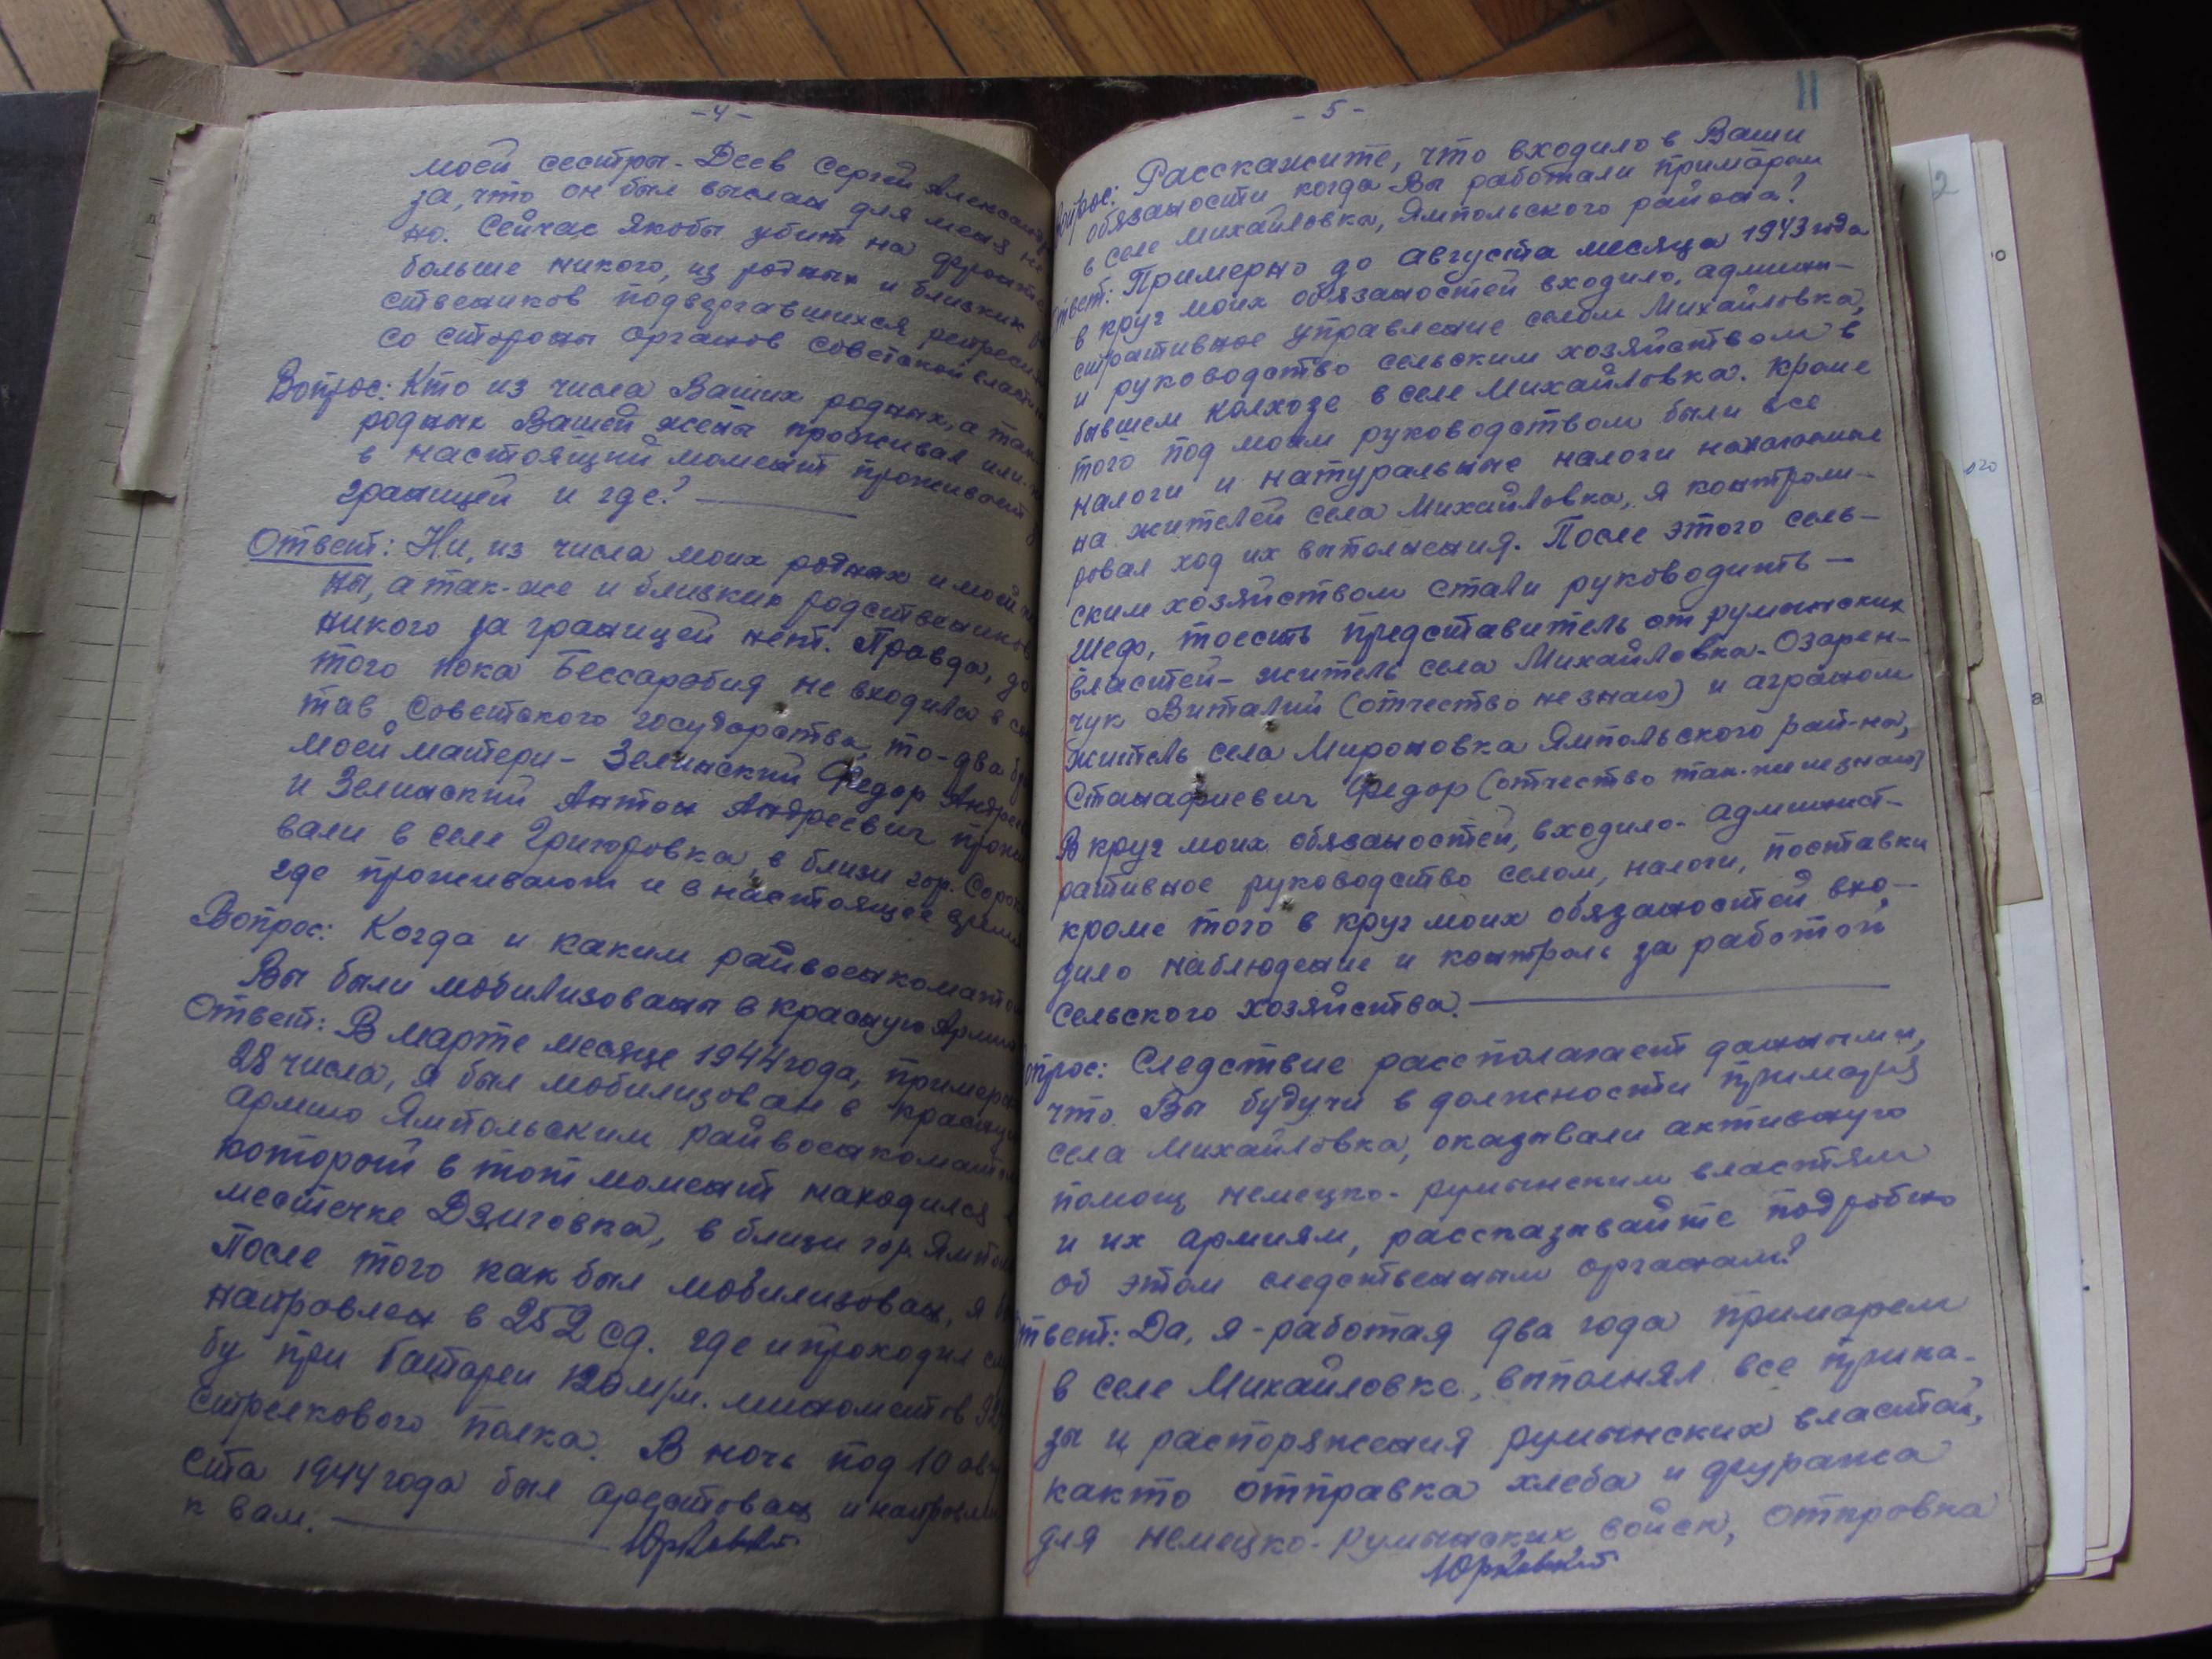 -4-
моей сестры - Деев Сергей Александр
за, что он был выслан для меня не
но. Сейчас якобы убит на фронте
больше никого, из родных и близких
ственников подвергавшихся репресси
со стороны органов советской власти
Вопрос: Кто из числа Ваших родных, а так-
родных Вашей жены проживал или
в настоящий момент проживает
границей и где?
Ответ: Ни, из числа моих родных и моей
ны, а так-же и близких родственников
никого за границей нет. Правда, до
того пока Бессарабия не входила в со
тав Советского государства, то-два бр
моей матери - Зелинский Федор Андрее
и Зелинский Антон Андреевич прожи
вали в селе Григоровка, в близи гор. Сорок
где проживают и в настоящее время
Вопрос: Когда и каким райвоенкоматом
Вы были мобилизованы в Красную Арми
Ответ: В марте месяце 1944 года, пример
28 числа, я был мобилизован в Красну
армию Ямпольским райвоенкомато
который в тот момент находился
местечке Дзиговка, в близи гор. Ямпол
После того как был мобилизован, я
направлен в 252 сд. где и проходил
бу при батареи 120 м/м. минометов
стрелкового полка. В ночь под 10 авг
ста 1944 года был арестован и направлен
к вам.
Юрковский
-5-
11
опрос: Расскажите, что входило в Ваши
обязаности когда Вы работали примарем
в селе Михайловка, Ямпольского района?
твет: Примерно до августа месяца 1943 года
в круг моих обязаностей входило, админи-
стративное управление селом Михайловка,
и руководство сельским хозяйством в
бывшем колхозе в селе Михайловка. Кроме
того под моим руководством были все
налоги и натуральные налоги наложенные
на жителей села Михайловка, я контроли-
ровал ход их выполнения. После этого сель-
ским хозяйством стали руководить -
Шеф, тоесть представитель от румынских
властей - житель села Михайловка - Озарен-
чук Виталий (отчество не знаю) и аграном
житель села Мироновка Ямпольского рай-на,
Станафиевич Федор (отчество так-же не знаю)
В круг моих обязаностей, входило- админист-
ративное руководство селом, налоги, поставки
кроме того в круг моих обязаностей вхо-
дило наблюдение и контроль за работой
сельского хозяйства.
опрос: Следствие рассполагает даными,
что Вы будучи в должности примаря
села Михайловка, оказывали активную
помощ немецко-румынским властям
и их армиям, рассказывайте подробно
об этом следственным органам?
твет: Да, я - работая два года примарем
в селе Михайловке, выполнял все прика-
зы и распоряжения румынских властей,
както отправка хлеба и фуража
для немецко-румынских войск, отправка
Юрковский
2